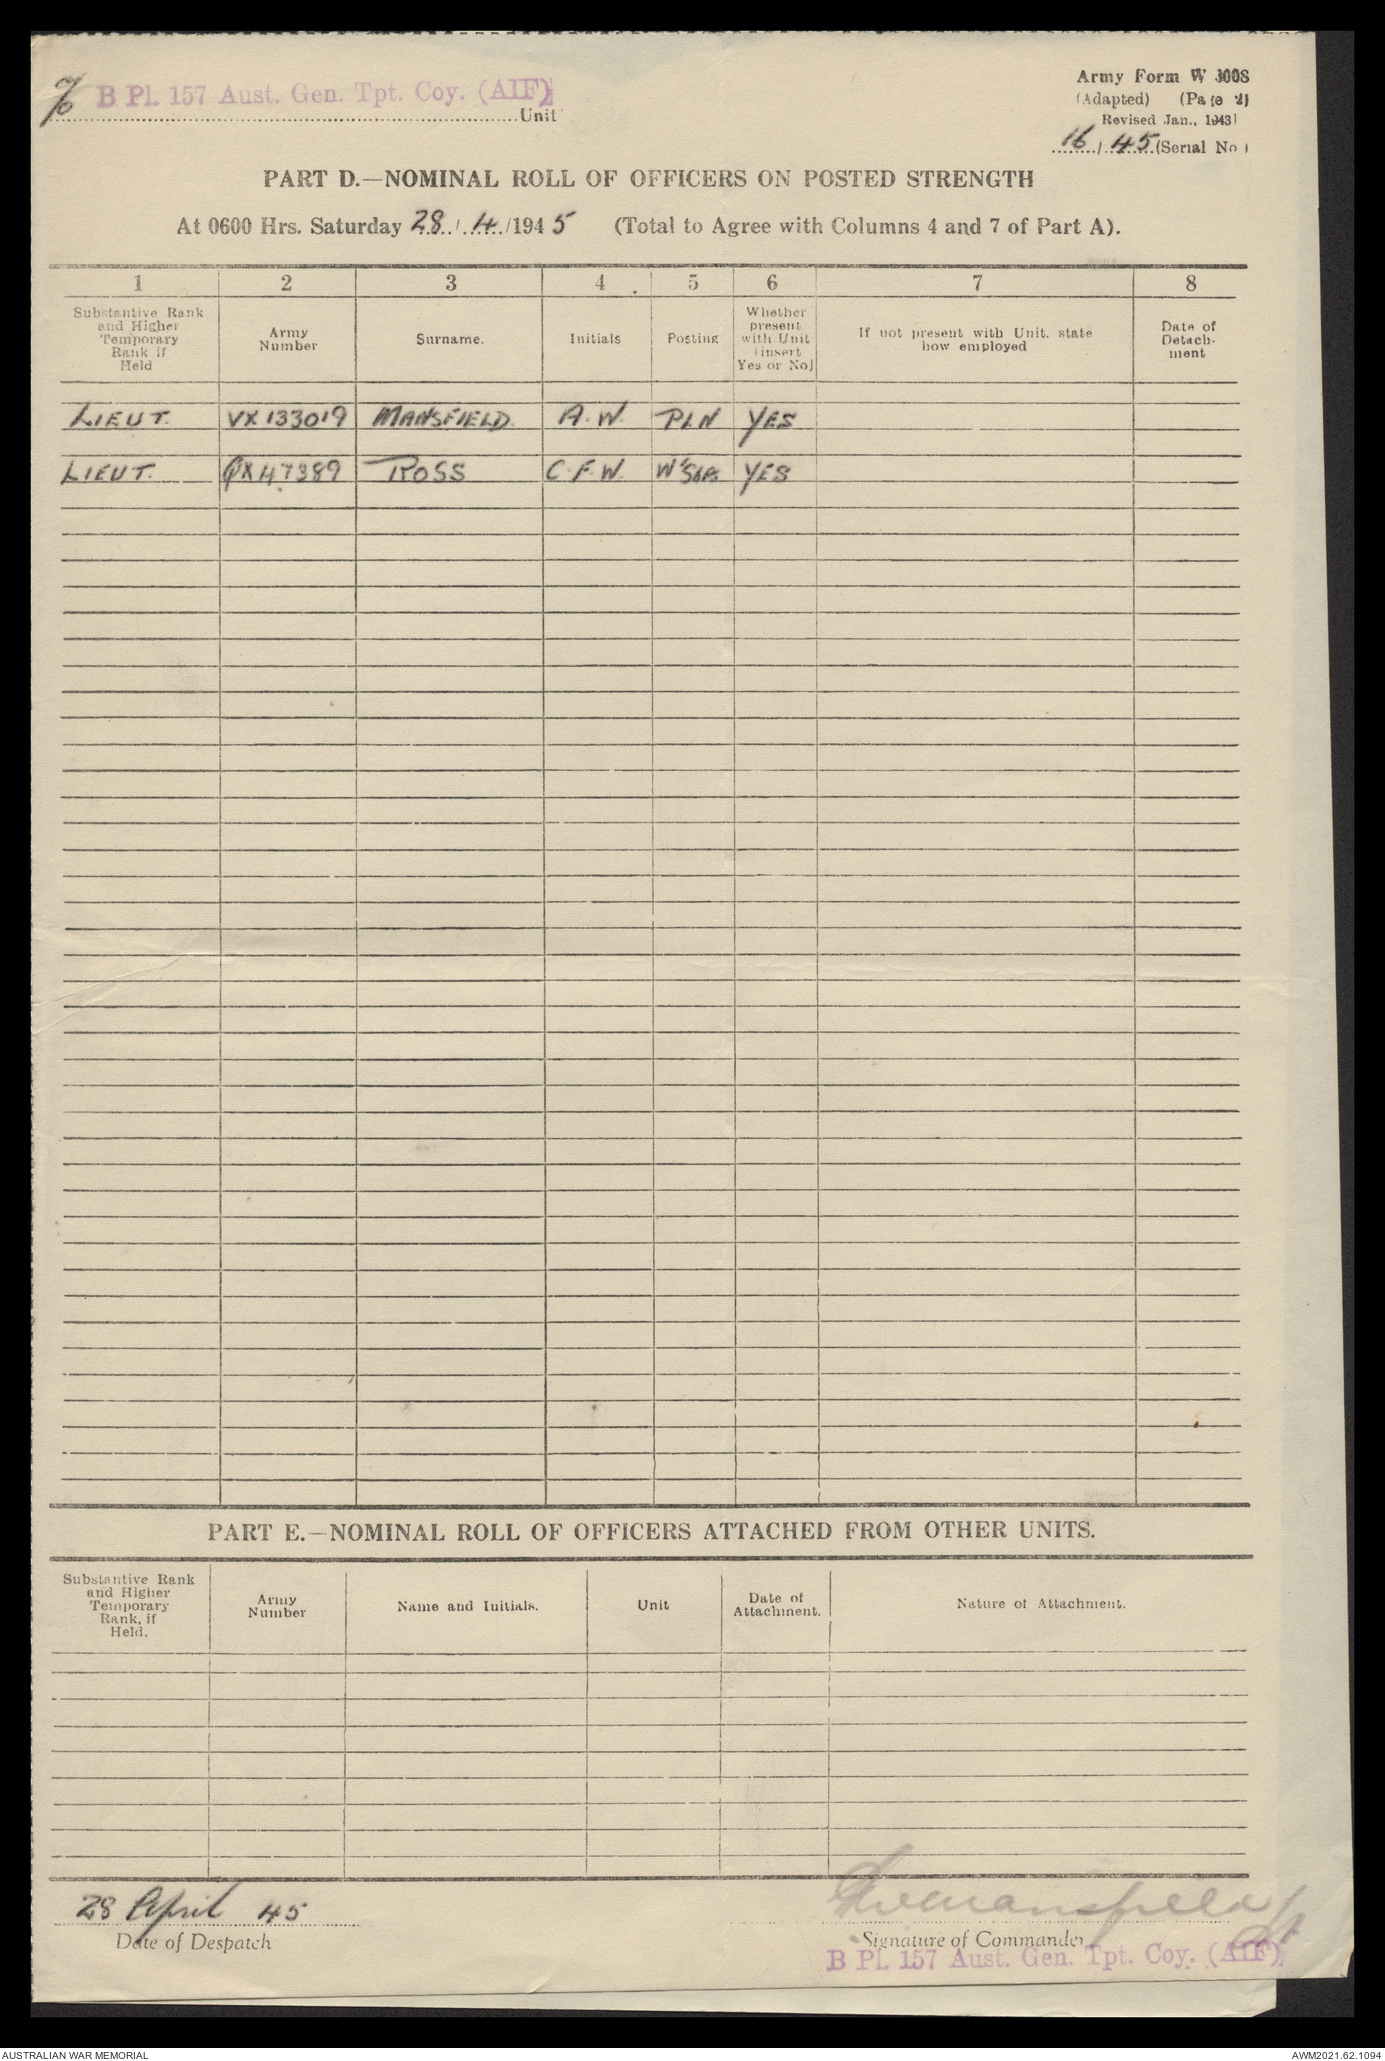 % B Pl. 157 Aust. Gen. Tpt. Coy. (AIF)
Unit
Army Form W 3008
(Adapted) (Page 2)
Revised Jan., 1943
16 / 45 (Serial No.)
PART D.—NOMINAL ROLL OF OFFICERS ON POSTED STRENGTH
At 0600 Hrs. Saturday 28 / 4 /1945 (Total to Agree with Columns 4 and 7 of Part A).
1 2 3 4 5 6 7 8
Substantive Rank and Higher Temporary Rank if Held
Army Number
Surname.
Initials
Posting
Whether present with Unit [insert Yes or No]
If not present with Unit. state how employed
Date of Detach-ment
LIEUT. VX133019 MANSFIELD. A. W. PLN YES
LIEUT. QX47389 ROSS C F. W. W'Shs YES
PART E.—NOMINAL ROLL OF OFFICERS ATTACHED FROM OTHER UNITS.
Substantive Rank and Higher Temporary Rank, if Held.
Army Number
Name and Initials.
Unit
Date of Attachment.
Nature of Attachment.
28 April 45
Date of Despatch
AWMansfield Lt
Signature of Commander
B Pl. 157 Aust. Gen. Tpt. Coy. (AIF)
AUSTRALIAN WAR MEMORIAL
AWM2021.62.1094